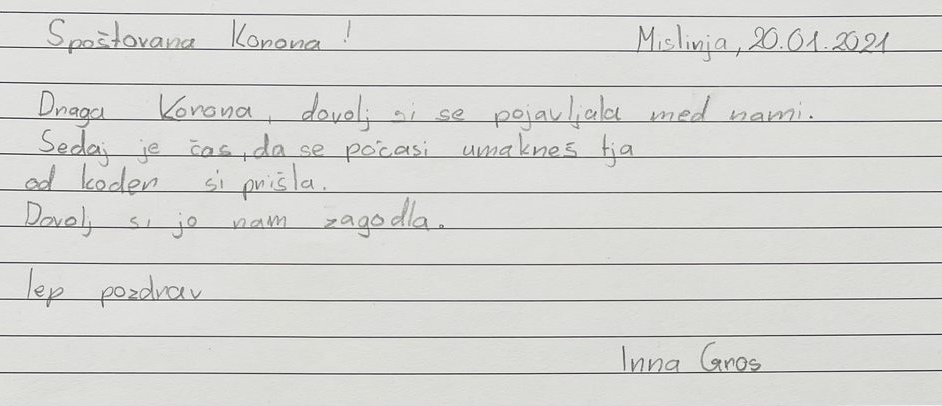 Spoštovana Korona! Mislinja, 20.01.2021
Draga Korona, dovolj si se pojavljala med nami.
Sedaj je čas, da se počasi umakneš tja
od koder si prišla.
Dovolj si jo nam zagodla.
lep pozdrav
Inna Gros